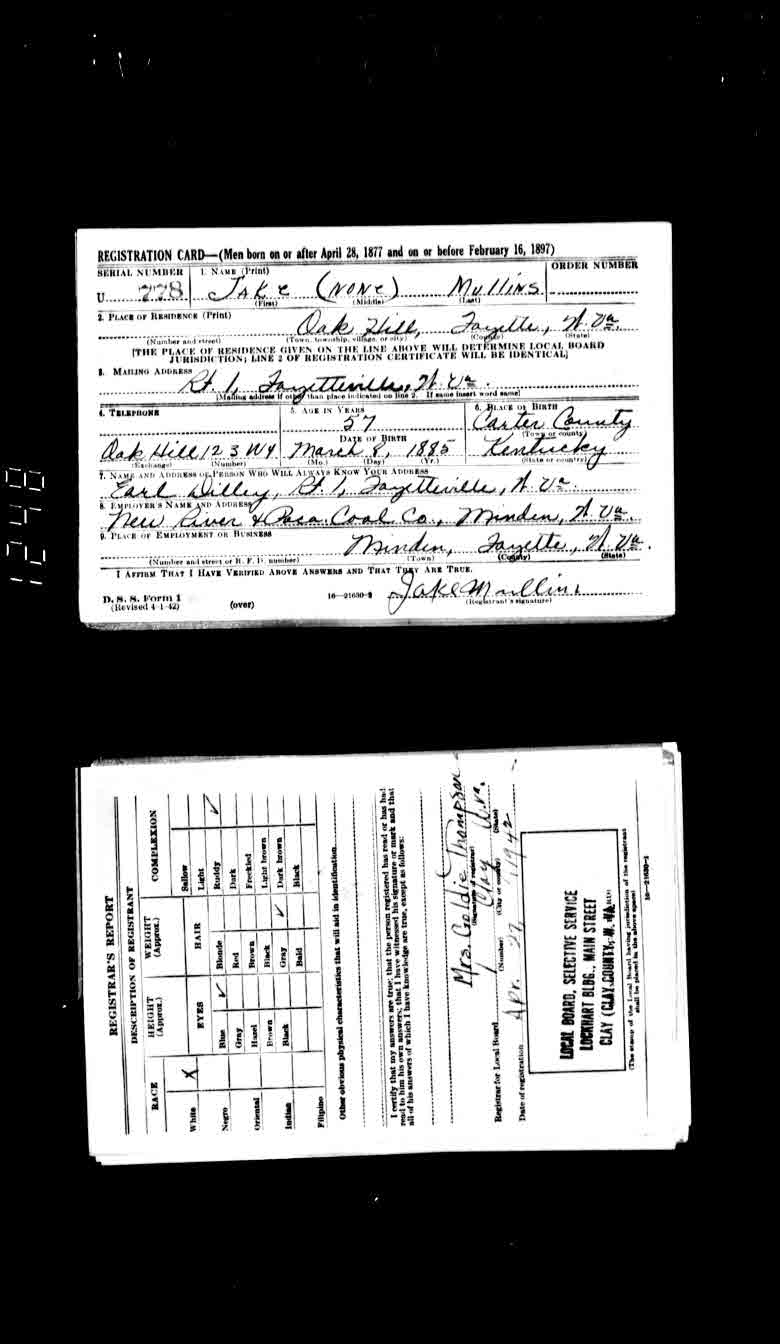 REGISTRATION CARD—(Men born on or after April 28, 1877 and on or before February 16, 1897)
SERIAL NUMBER 1. NAME (Print) ORDER NUMBER
U 778 Jake (None) Mullins
(First) (Middle) (Last)
2. PLACE OF RESIDENCE (Print)
Oak Hill, Fayette, W. Va.
(Number and street) (Town, township, village, or city) (County) (State)
[THE PLACE OF RESIDENCE GIVEN ON THE LINE ABOVE WILL DETERMINE LOCAL BOARD
JURISDICTION; LINE 2 OF REGISTRATION CERTIFICATE WILL BE IDENTICAL]
3. MAILING ADDRESS
Rt. 1, Fayetteville, W. Va.
[Mailing address if other than place indicated on line 2. If same insert word same]
4. TELEPHONE 5. AGE IN YEARS 6. PLACE OF BIRTH
57 Carter County
DATE OF BIRTH (Town or county)
Oak Hill 123 W4 March 8, 1885 Kentucky
(Exchange) (Number) (Mo.) (Day) (Yr.) (State or country)
7. NAME AND ADDRESS OF PERSON WHO WILL ALWAYS KNOW YOUR ADDRESS
Earl Dilley, Rt. 1, Fayetteville, W. Va.
8. EMPLOYER'S NAME AND ADDRESS
New River & Poca Coal Co., Minden, W. Va.
9. PLACE OF EMPLOYMENT OR BUSINESS
Minden, Fayette, W. Va.
(Number and street or R. F. D. number) (Town) (County) (State)
I AFFIRM THAT I HAVE VERIFIED ABOVE ANSWERS AND THAT THEY ARE TRUE.
Jake Mullins
D. S. S. Form 1
(Revised 4-1-42) (over) 16—21630-2 (Registrant's signature)
1248
REGISTRAR'S REPORT
DESCRIPTION OF REGISTRANT
RACE HEIGHT (Approx.) WEIGHT (Approx.) COMPLEXION
EYES HAIR
White X Sallow
Light
Negro Blue ✓ Blonde Ruddy ✓
Gray Red Dark
Oriental Hazel Brown Freckled
Brown Black Light brown
Indian Black Gray ✓ Dark brown
Bald Black
Filipino
Other obvious physical characteristics that will aid in identification
I certify that my answers are true; that the person registered has read or has had
read to him his own answers; that I have witnessed his signature or mark and that
all of his answers of which I have knowledge are true, except as follows:
Mrs. Goldie Thompson
(Signature of registrar)
Registrar for Local Board 1 Clay W. Va.
(Number) (City or county) (State)
Date of registration Apr. 27, 1942
LOCAL BOARD, SELECTIVE SERVICE
LOCKHART BLDG., MAIN STREET
CLAY (CLAY COUNTY) W. VA.
(The stamp of the Local Board having jurisdiction of the registrant
shall be placed in the above space)
16—21630-1